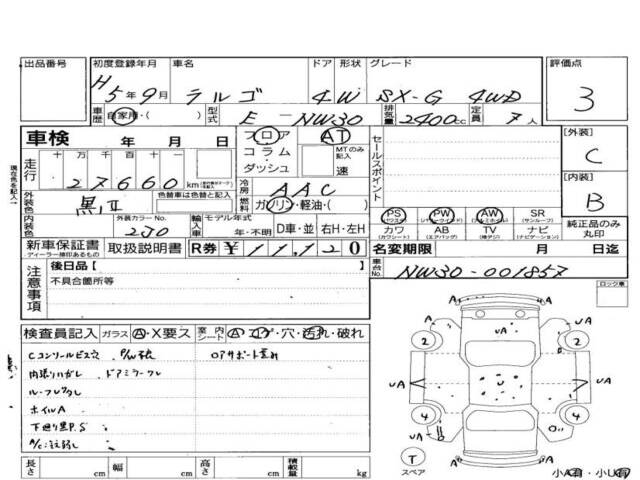 出品番号 初度登録年月 車名 ドア 形状 グレード 評価点
H5年9月 ラルゴ 4W SX-G 4WD 3
車歴 自家用・( ) 型式 E-NW30 排気量 2400cc 定員 7人
車検 年 月 日
フロア・コラム・ダッシュ
AT
MTのみ記入
速
セールスポイント
[外装]
C
[内装]
B
現在色を記入
走行 十万千百十一
27660 km
冷房 AAC
外装色 黒,II 色替車は色替と記入
燃料 ガソリン・軽油・( )
PS PW AW SR
(パワステ) (パワーウインド) (アルミホイル) (サンルーフ)
カワ AB TV ナビ
(カワシート) (エアバッグ) (純正ジ) (ナビゲーション)
純正品のみ丸印
内装色 外装カラーNo. 2J0
輸入車 モデル年式 年・不明 D車・並 右H・左H
新車保証書 取扱説明書 R券 ¥11,120
ディーラー捺印あるもの
名変期限 月 日迄
車台No. NW30-001857
注意事項
後日品[ ]
不具合箇所等
ロック車
検査員記入 ガラス A・X要ス 室内シート A・コゲ・穴・汚れ・破れ
Cコンソールビス穴
内張りハガレ. ドアミラーワレ
ホイルA
下廻り黒P.S
長さ cm 幅 cm 高さ cm 積載量 kg
UA UA
2 2
UA UA
4 4
T
スペア
小A有・小U有